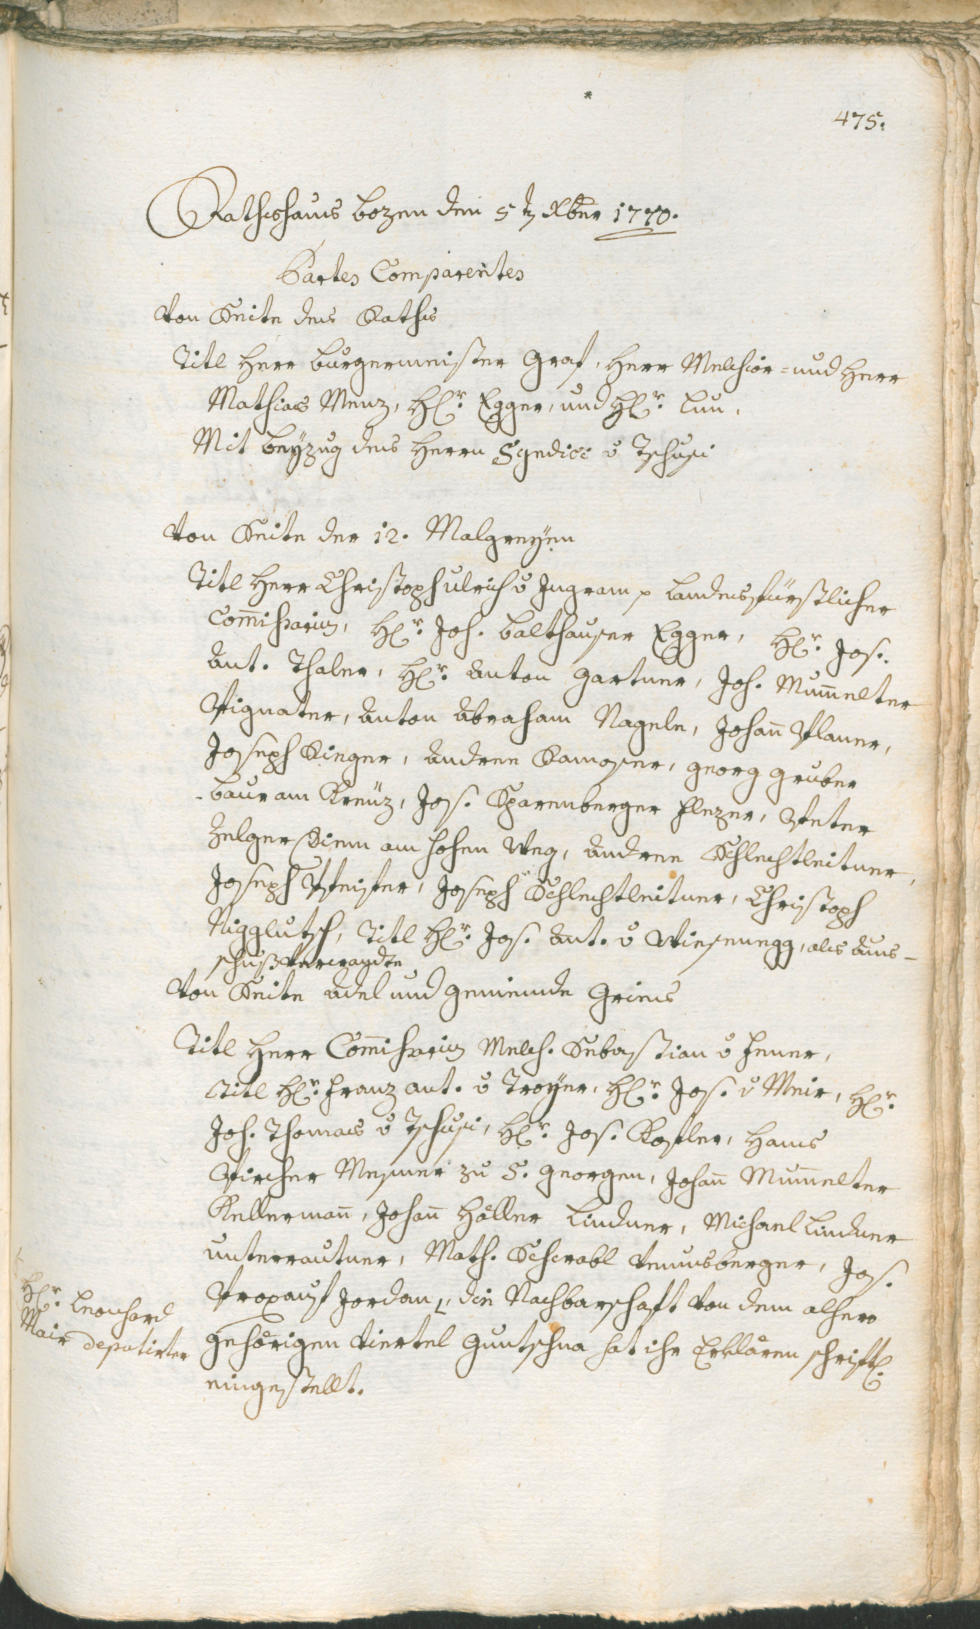 475.
Rathshaus Bozen den 5t Xber 1770.
Partes Comparentes
Von Seite des Raths
Titl Herr Burgermeister Graf, Herr Melchior- und Herr
Mathias Menz, H: Egger, und H: Lun.
Mit Beyzug des Herrn Syndici v Tschusi
Von Seite der 12. Malgreyen
Titl Herr Christoph Ulrich v Ingram p Landesfürstlicher
Com̅issarius, H: Joh. Balthauser Egger, H: Jos.
Ant. Thaler, H: Anton Gartner, Joh. Mum̅elter
Pignater, Anton Abraham Nagele, Johan̅ Planer,
Joseph Singer, Andree Ramoser, Georg Gruber
Baur am Kreuz, Jos. Sparenberger Plezer, Peter
Zelger Dienn am hohen Weg, Andree Schlechtleitner,
Joseph Pfeifer, Joseph Schlechtleitner, Christoph
Niggglutsch, Titl H: Jos. Ant. v Wiesenegg, als Aus-
schußverwandte
Von Seite Adel und Gemeinde Gries
Titl Herr Com̅issarius Melch. Sebastian v Hener,
Titl H: Franz Ant. v Troyer, H: Jos. v Meir, H:
Joh. Thomas v Tschusi, H: Jos. Kofler, Hans
Pircher Mesmer zu S. Georgen, Johan̅ Mum̅elter
Kellerman̅, Johan̅ Höller Lindner, Michael Lindner
Unterrautner, Math. Schrabl Venusberger, Jos.
Propaust Jordan, die Nachbarschaft von dem alhero
gehörigen Viertel Guntschna hat ihr Erklären schriftl:
eingestellt.
H: Leonhard
Mair depatirter